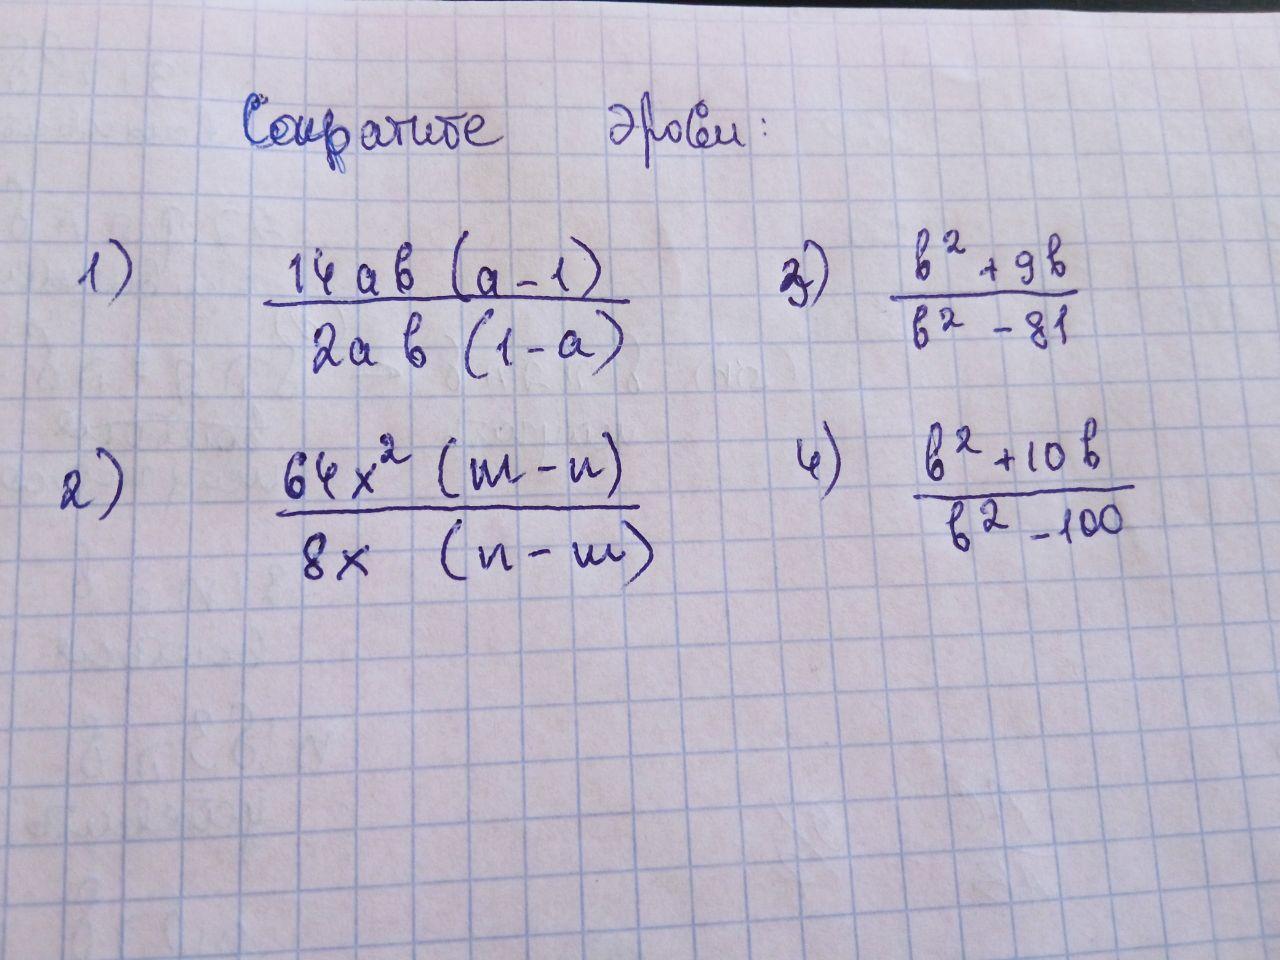 Сократите дроби:
1) 14ab (a - 1) / 2ab (1 - a)
3) b² + 9b / b² - 81
2) 64x² (m - n) / 8x (n - m)
4) b² + 10b / b² - 100